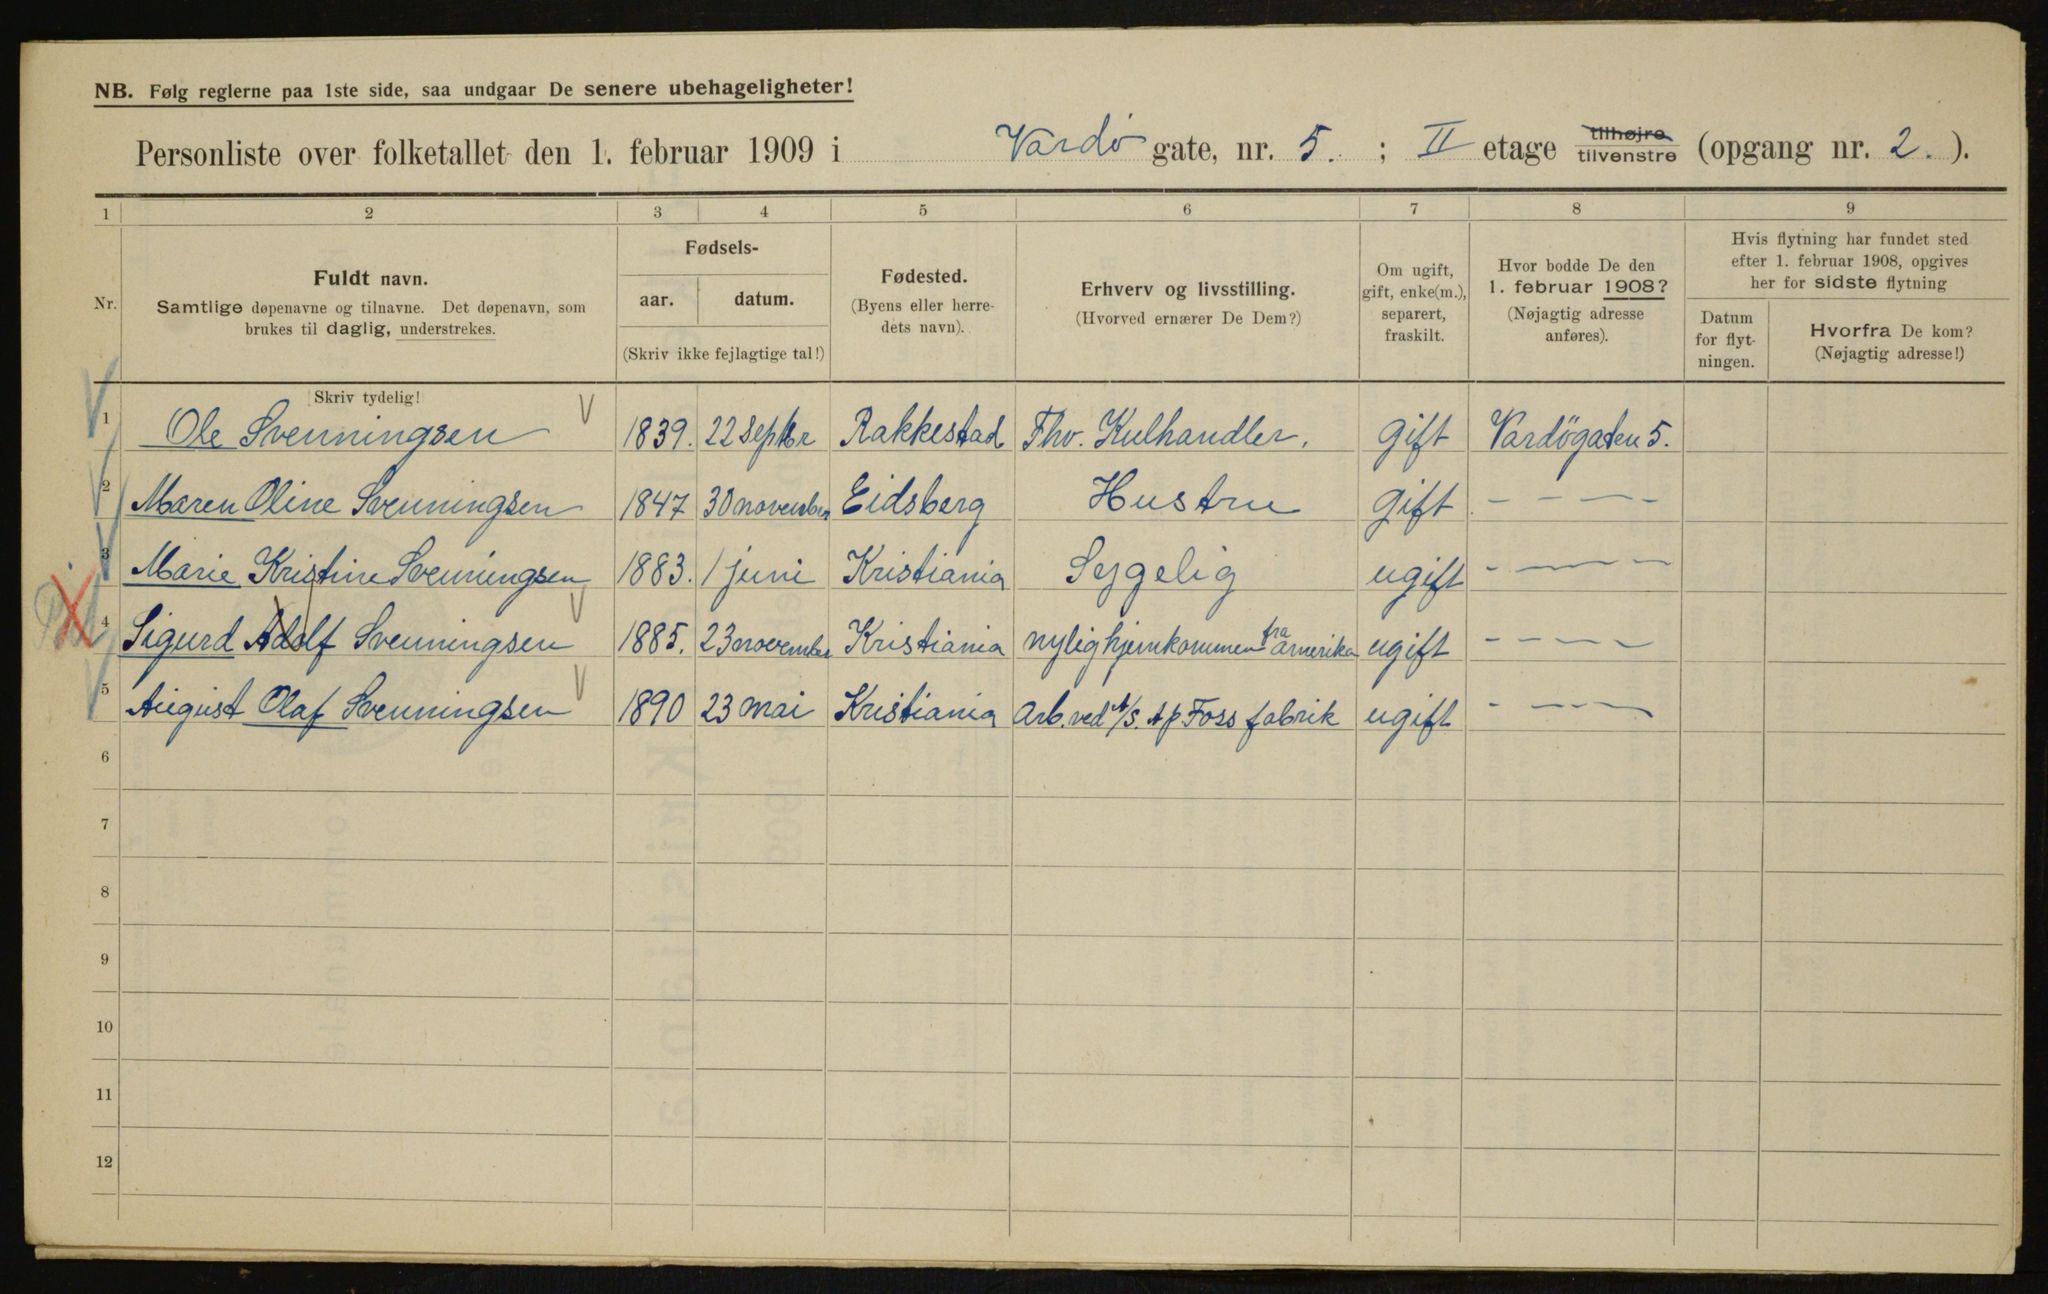 NB. Følg reglerne paa 1ste side, saa undgaar De senere ubehageligheter!
Personliste over folketallet den 1. februar 1909 i Vardø gate, nr. 5. ; II etage tilhøjre tilvenstre (opgang nr. 2. ).
1 2 3 4 5 6 7 8 9
Nr.
Fuldt navn.
Samtlige døpenavne og tilnavne. Det døpenavn, som
brukes til daglig, understrekes.
Fødsels-
aar. datum.
(Skriv ikke fejlagtige tal!)
Fødested.
(Byens eller herre-
dets navn).
Erhverv og livsstilling.
(Hvorved ernærer De Dem?)
Om ugift,
gift, enke(m.),
separert,
fraskilt.
Hvor bodde De den
1. februar 1908?
(Nøjagtig adresse
anføres).
Hvis flytning har fundet sted
efter 1. februar 1908, opgives
her for sidste flytning
Datum
for flyt-
ningen.
Hvorfra De kom?
(Nøjagtig adresse!)
Skriv tydelig!
1 Ole Svenningsen 1839. 22 septbr Rakkestad Fhv. Kulhandler. gift Vardøgaten 5.
2 Maren Oline Svenningsen 1847 30 november Eidsberg Hustru gift - - - -
3 Marie Kristine Svenningsen 1883. 1 juni Kristiania Sygelig ugift - - - -
4 Sigurd Adolf Svenningsen 1885. 23 november Kristiania nylig hjemkommen fra amerika ugift - - - -
5 August Olaf Svenningsen 1890 23 mai Kristiania Arb. ved A/S. Foss fabrik ugift - - - -
6
7
8
9
10
11
12